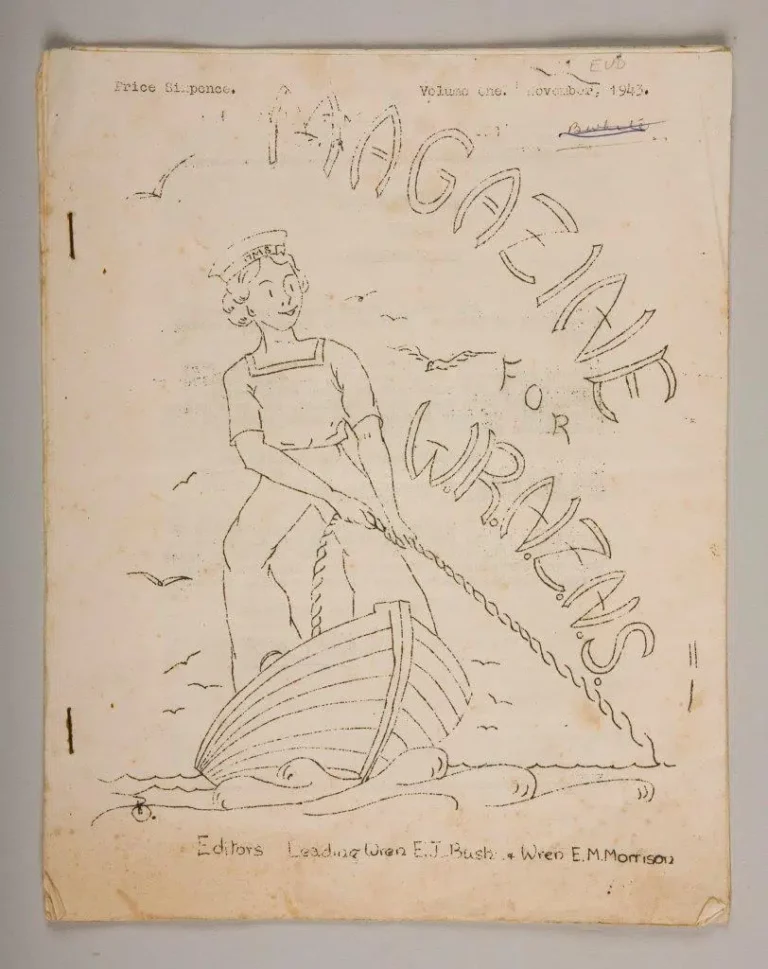 EVD
Price Sixpence. Volume One. November, 1943.
MAGAZINE
FOR
W.R.N.Z.N.S.
HMS
Editors Leading Wren E.J. Bush & Wren E.M.Morrison